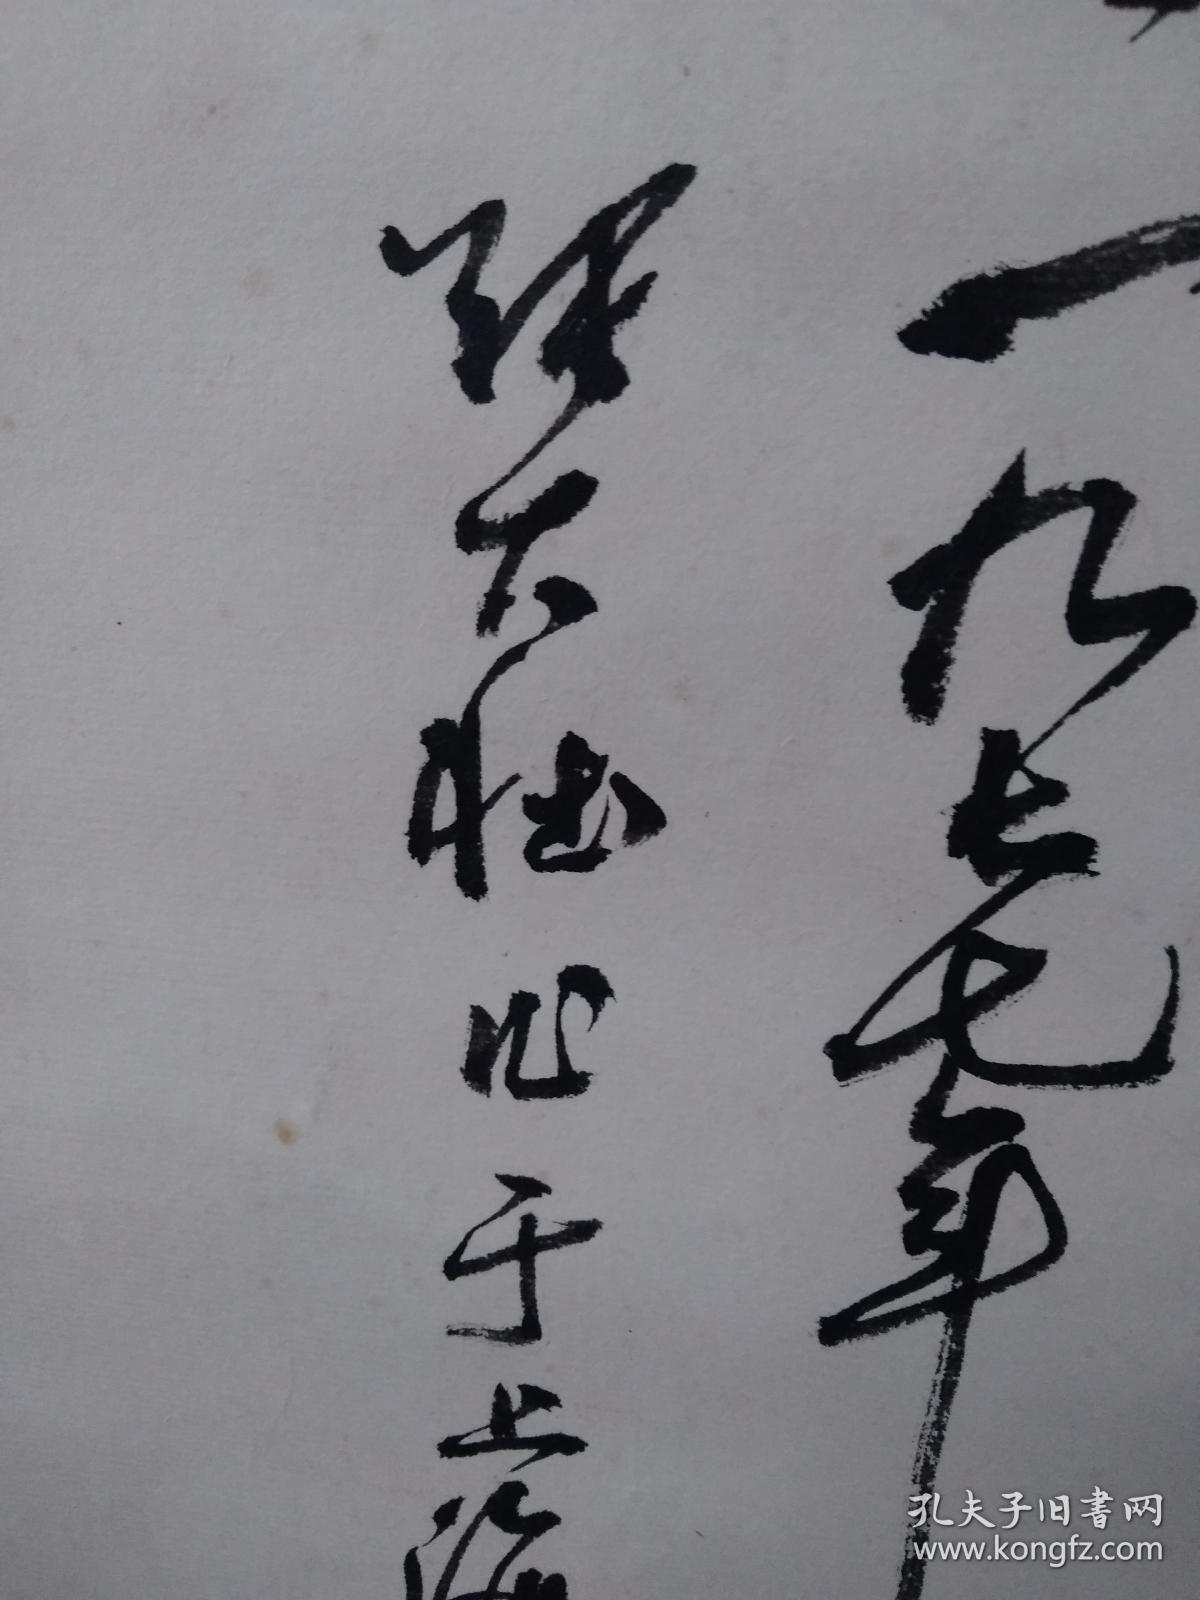 一九七七年
张大壮作于上海
孔夫子旧书网
www.kongfz.com